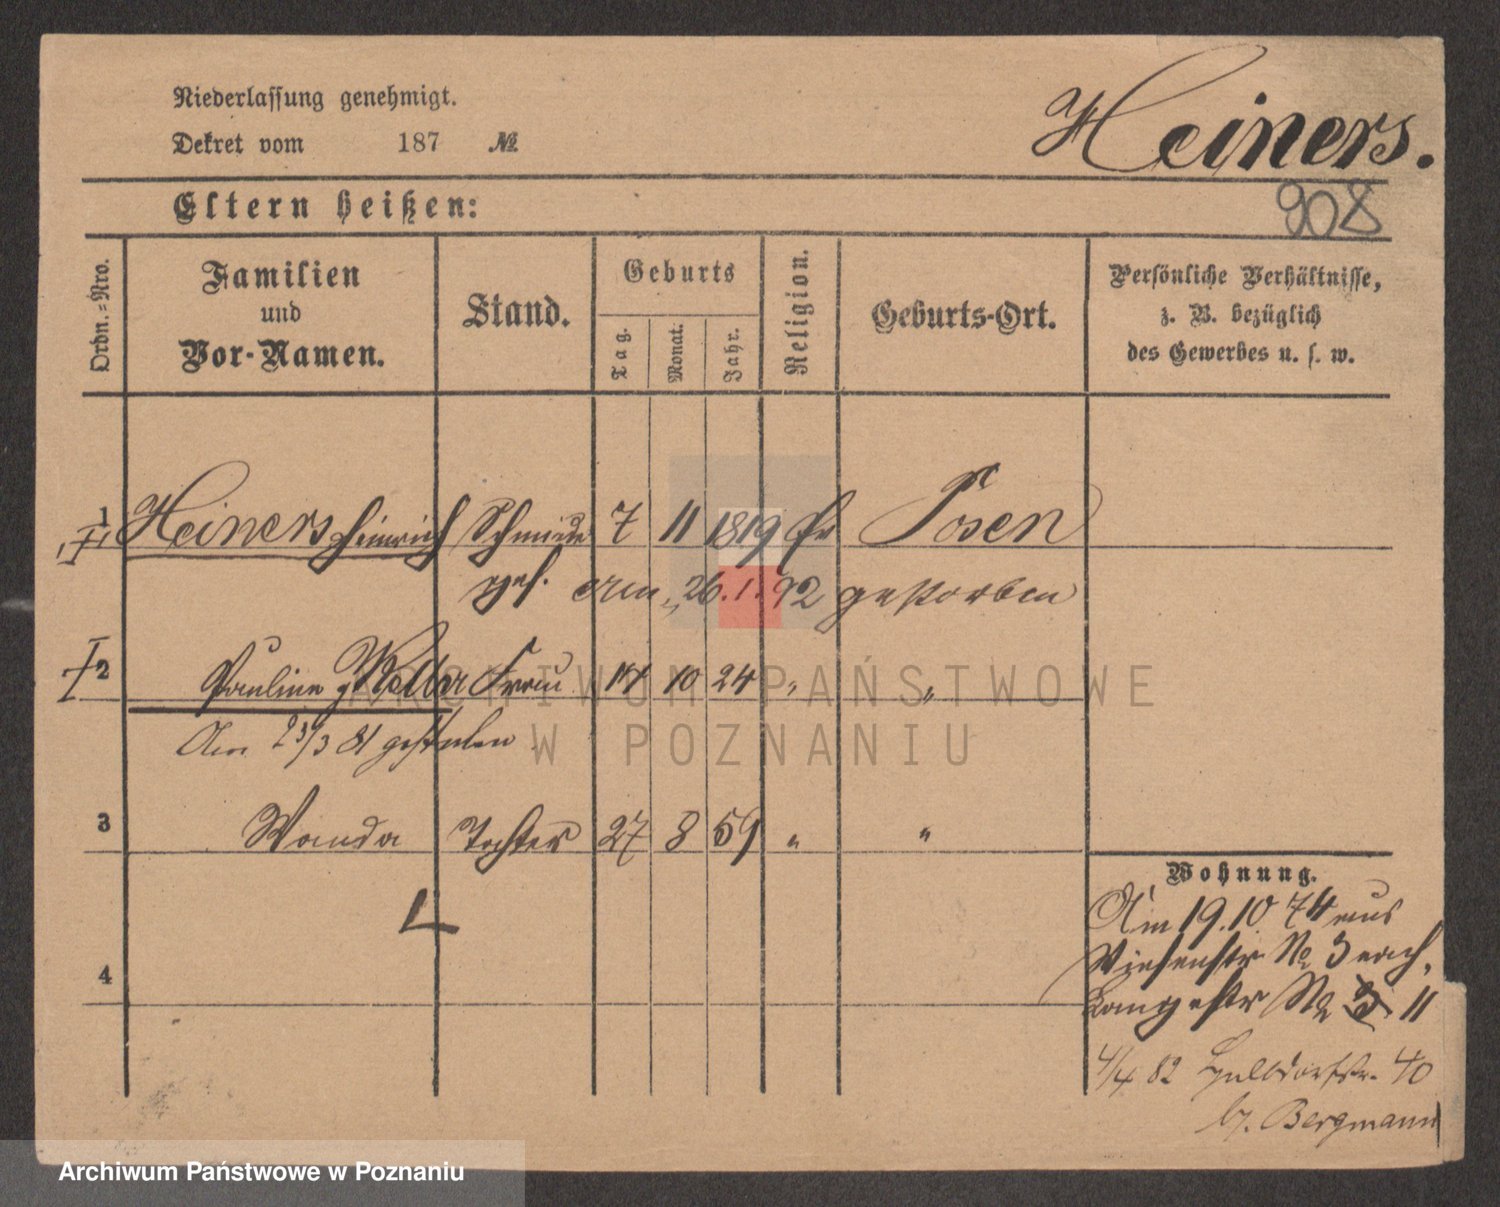 Niederlassung genehmigt.
Dekret vom 187 №
Heiners.
Eltern heißen:
908
Ordn.-Nro.
Familien und Vor-Namen.
Stand.
Geburts
Tag. Monat. Jahr.
Religion.
Geburts-Ort.
Persönliche Verhältnisse, z. B. bezüglich des Gewerbes u. s. w.
1 Heiners Heinrich Schmiede 7 11 1819 Posen
ges. Am 26.1.92 gestorben
2 Pauline g Weller Frau 10 24 " "
Am 23/3 81 gestorben
3 Wanda Tochter 27 8 59 " "
4
Wohnung.
Am 19.10 74 aus
Wiesenstr № 3 nach
Langestr № 11
4/4 82 40
b. Bergmann
ARCHIWUM PAŃSTWOWE
W POZNANIU
Archiwum Państwowe w Poznaniu